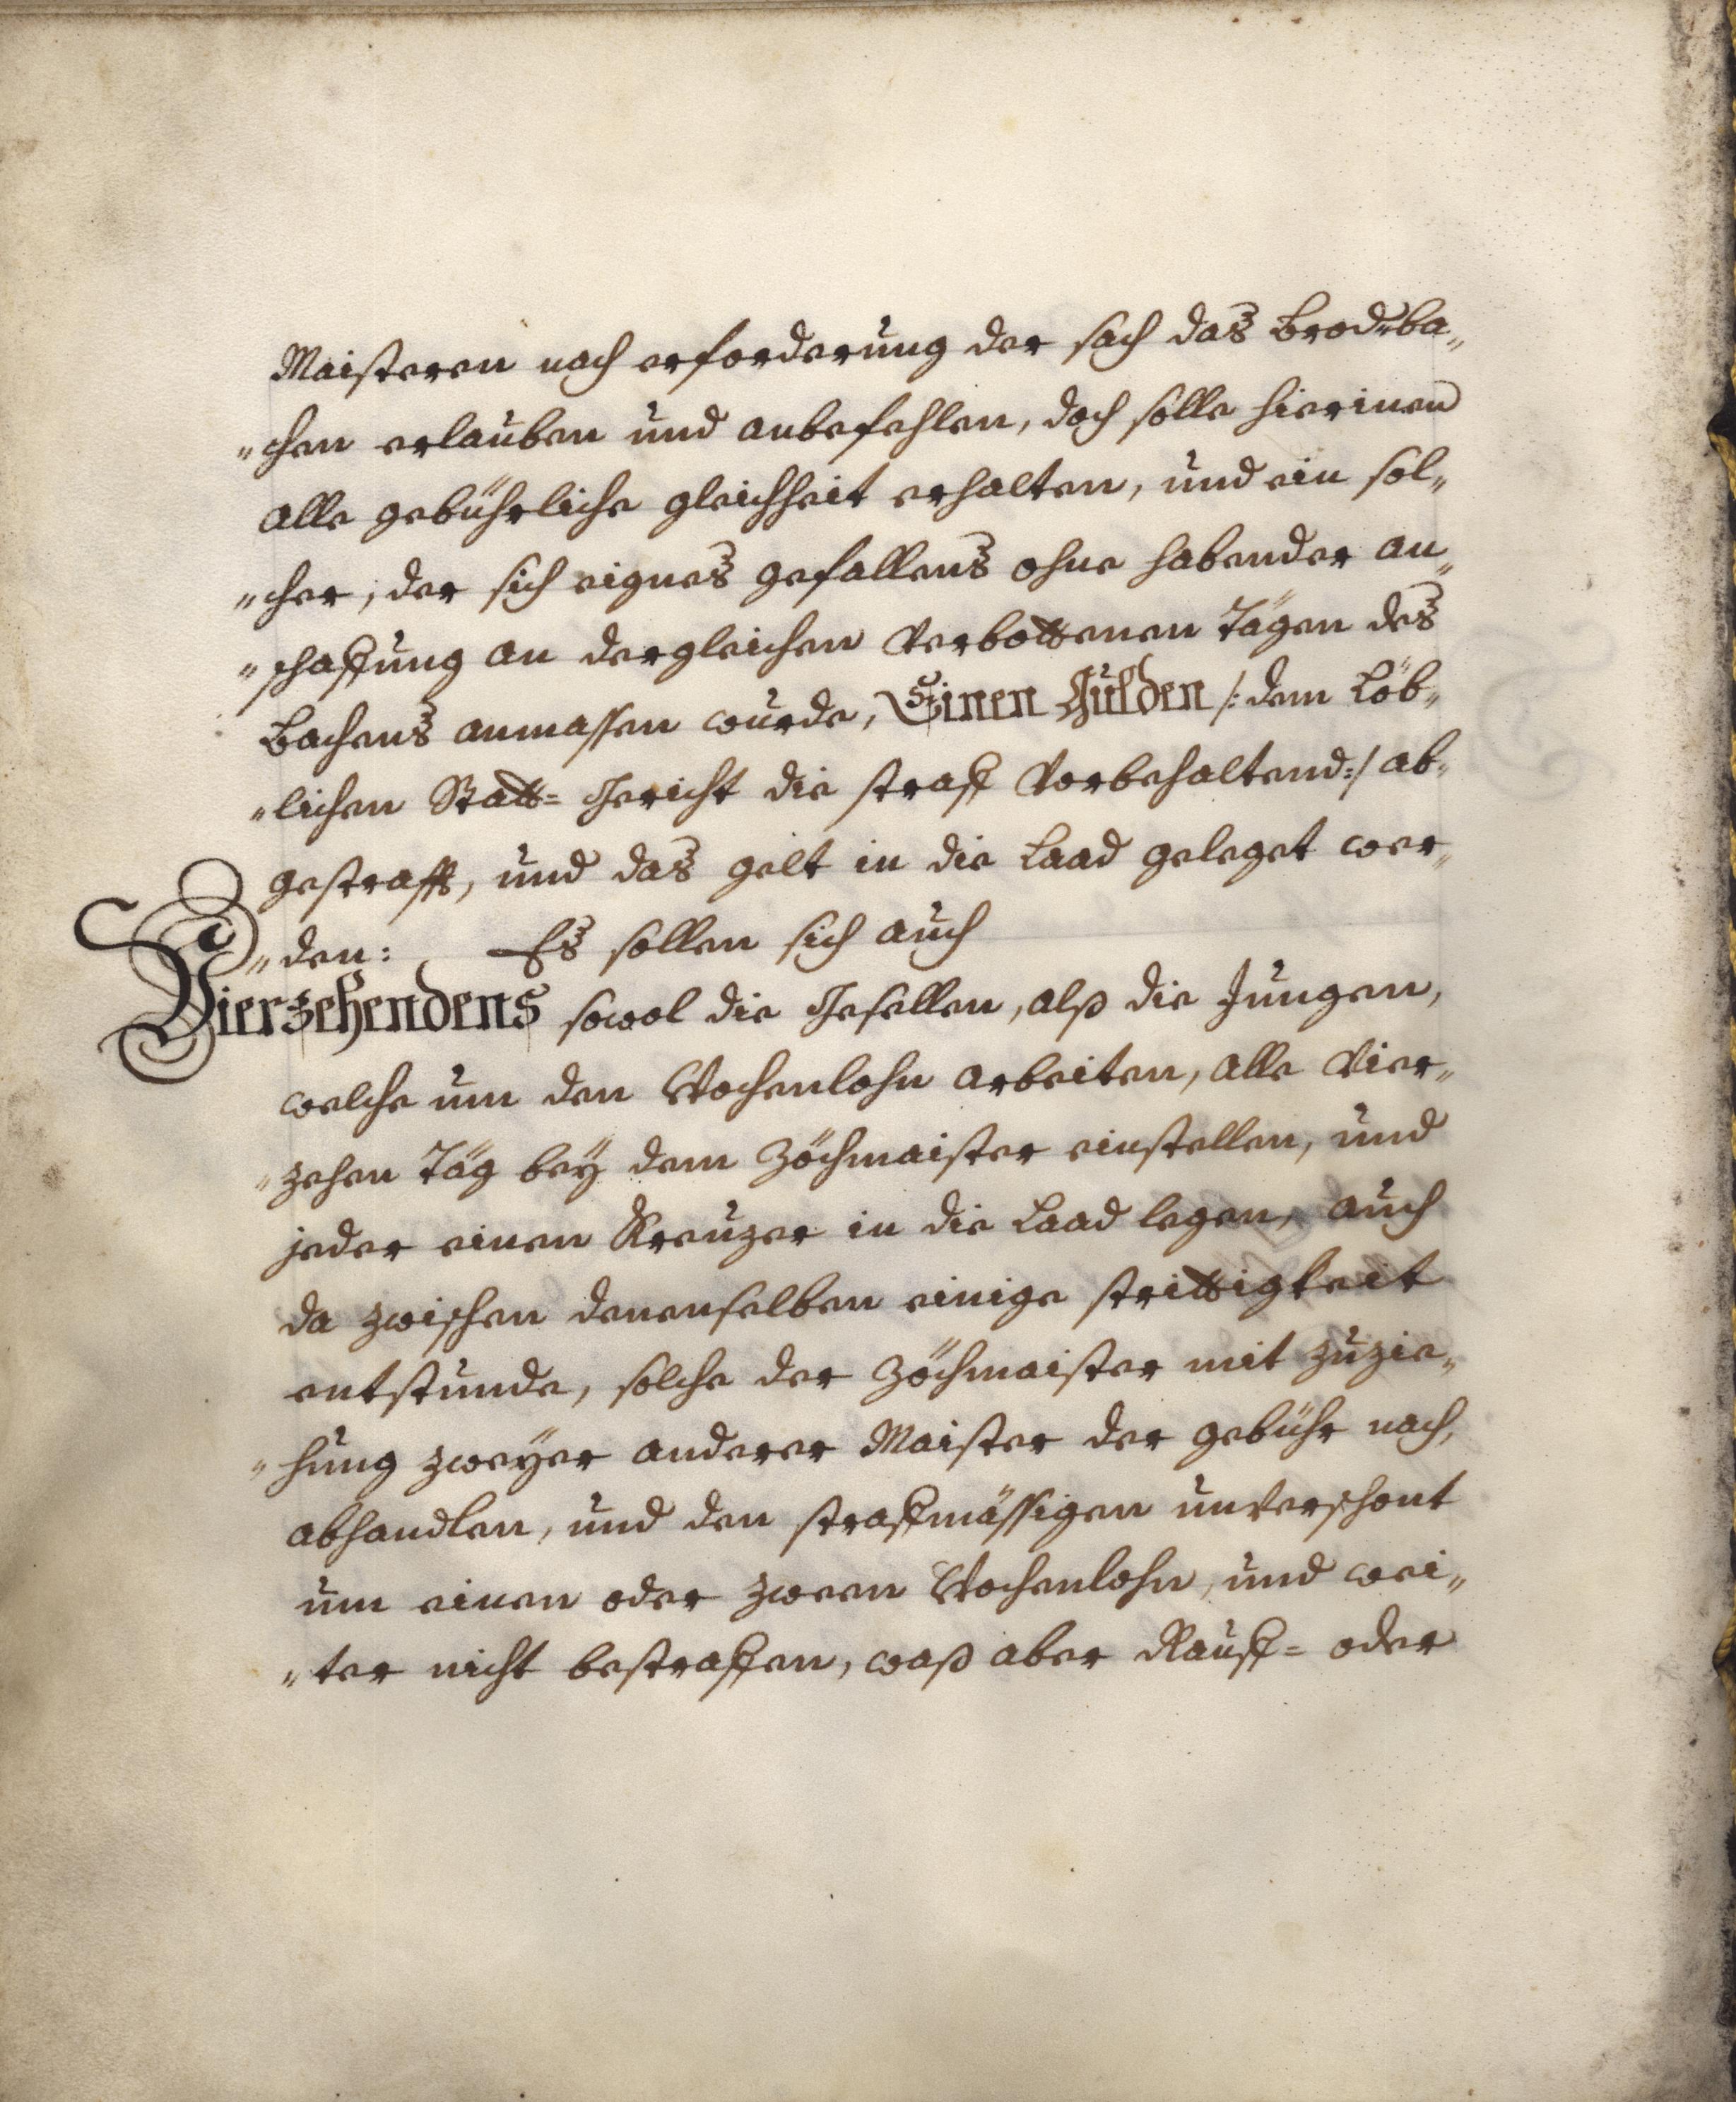 Maisteren nach erforderung der sach das Brod=ba„
„chen erlauben und anbefehlen, doch solle hierinen
alle gebührliche gleichheit erhalten, und ein sol„
„cher, der sich eignes gefallens ohne habender an„
„schaffung an dergleichen Verbottenen Tägen des
Bachens anmassen wurde, Einen Gulden /: dem Löb„
„lichen Statt= Gericht die straff Vorbehaltend :/ ab„
gestrafft, und das gelt in die Laad geleget wer„
„den: Es sollen sich auch
Vierzehendens sowol die Gesellen, alß die Jungen,
welche um den Wochenlohn arbeiten, alle Vier„
„zehen Täg beÿ dem Zöchmaister einstellen, und
jeder einen Kreuzer in die Laad legen, auch
da zwischen denenselben einige strittigkeit
entstunde, solche der Zöchmaister mit zuzie„
„hung zweÿer anderer Maister der gebühr nach,
abhandlen, und den straffmässigen unverschont
um einen oder zween Wochenlohn, und wei„
„ter nicht bestraffen, waß aber Rauff= oder